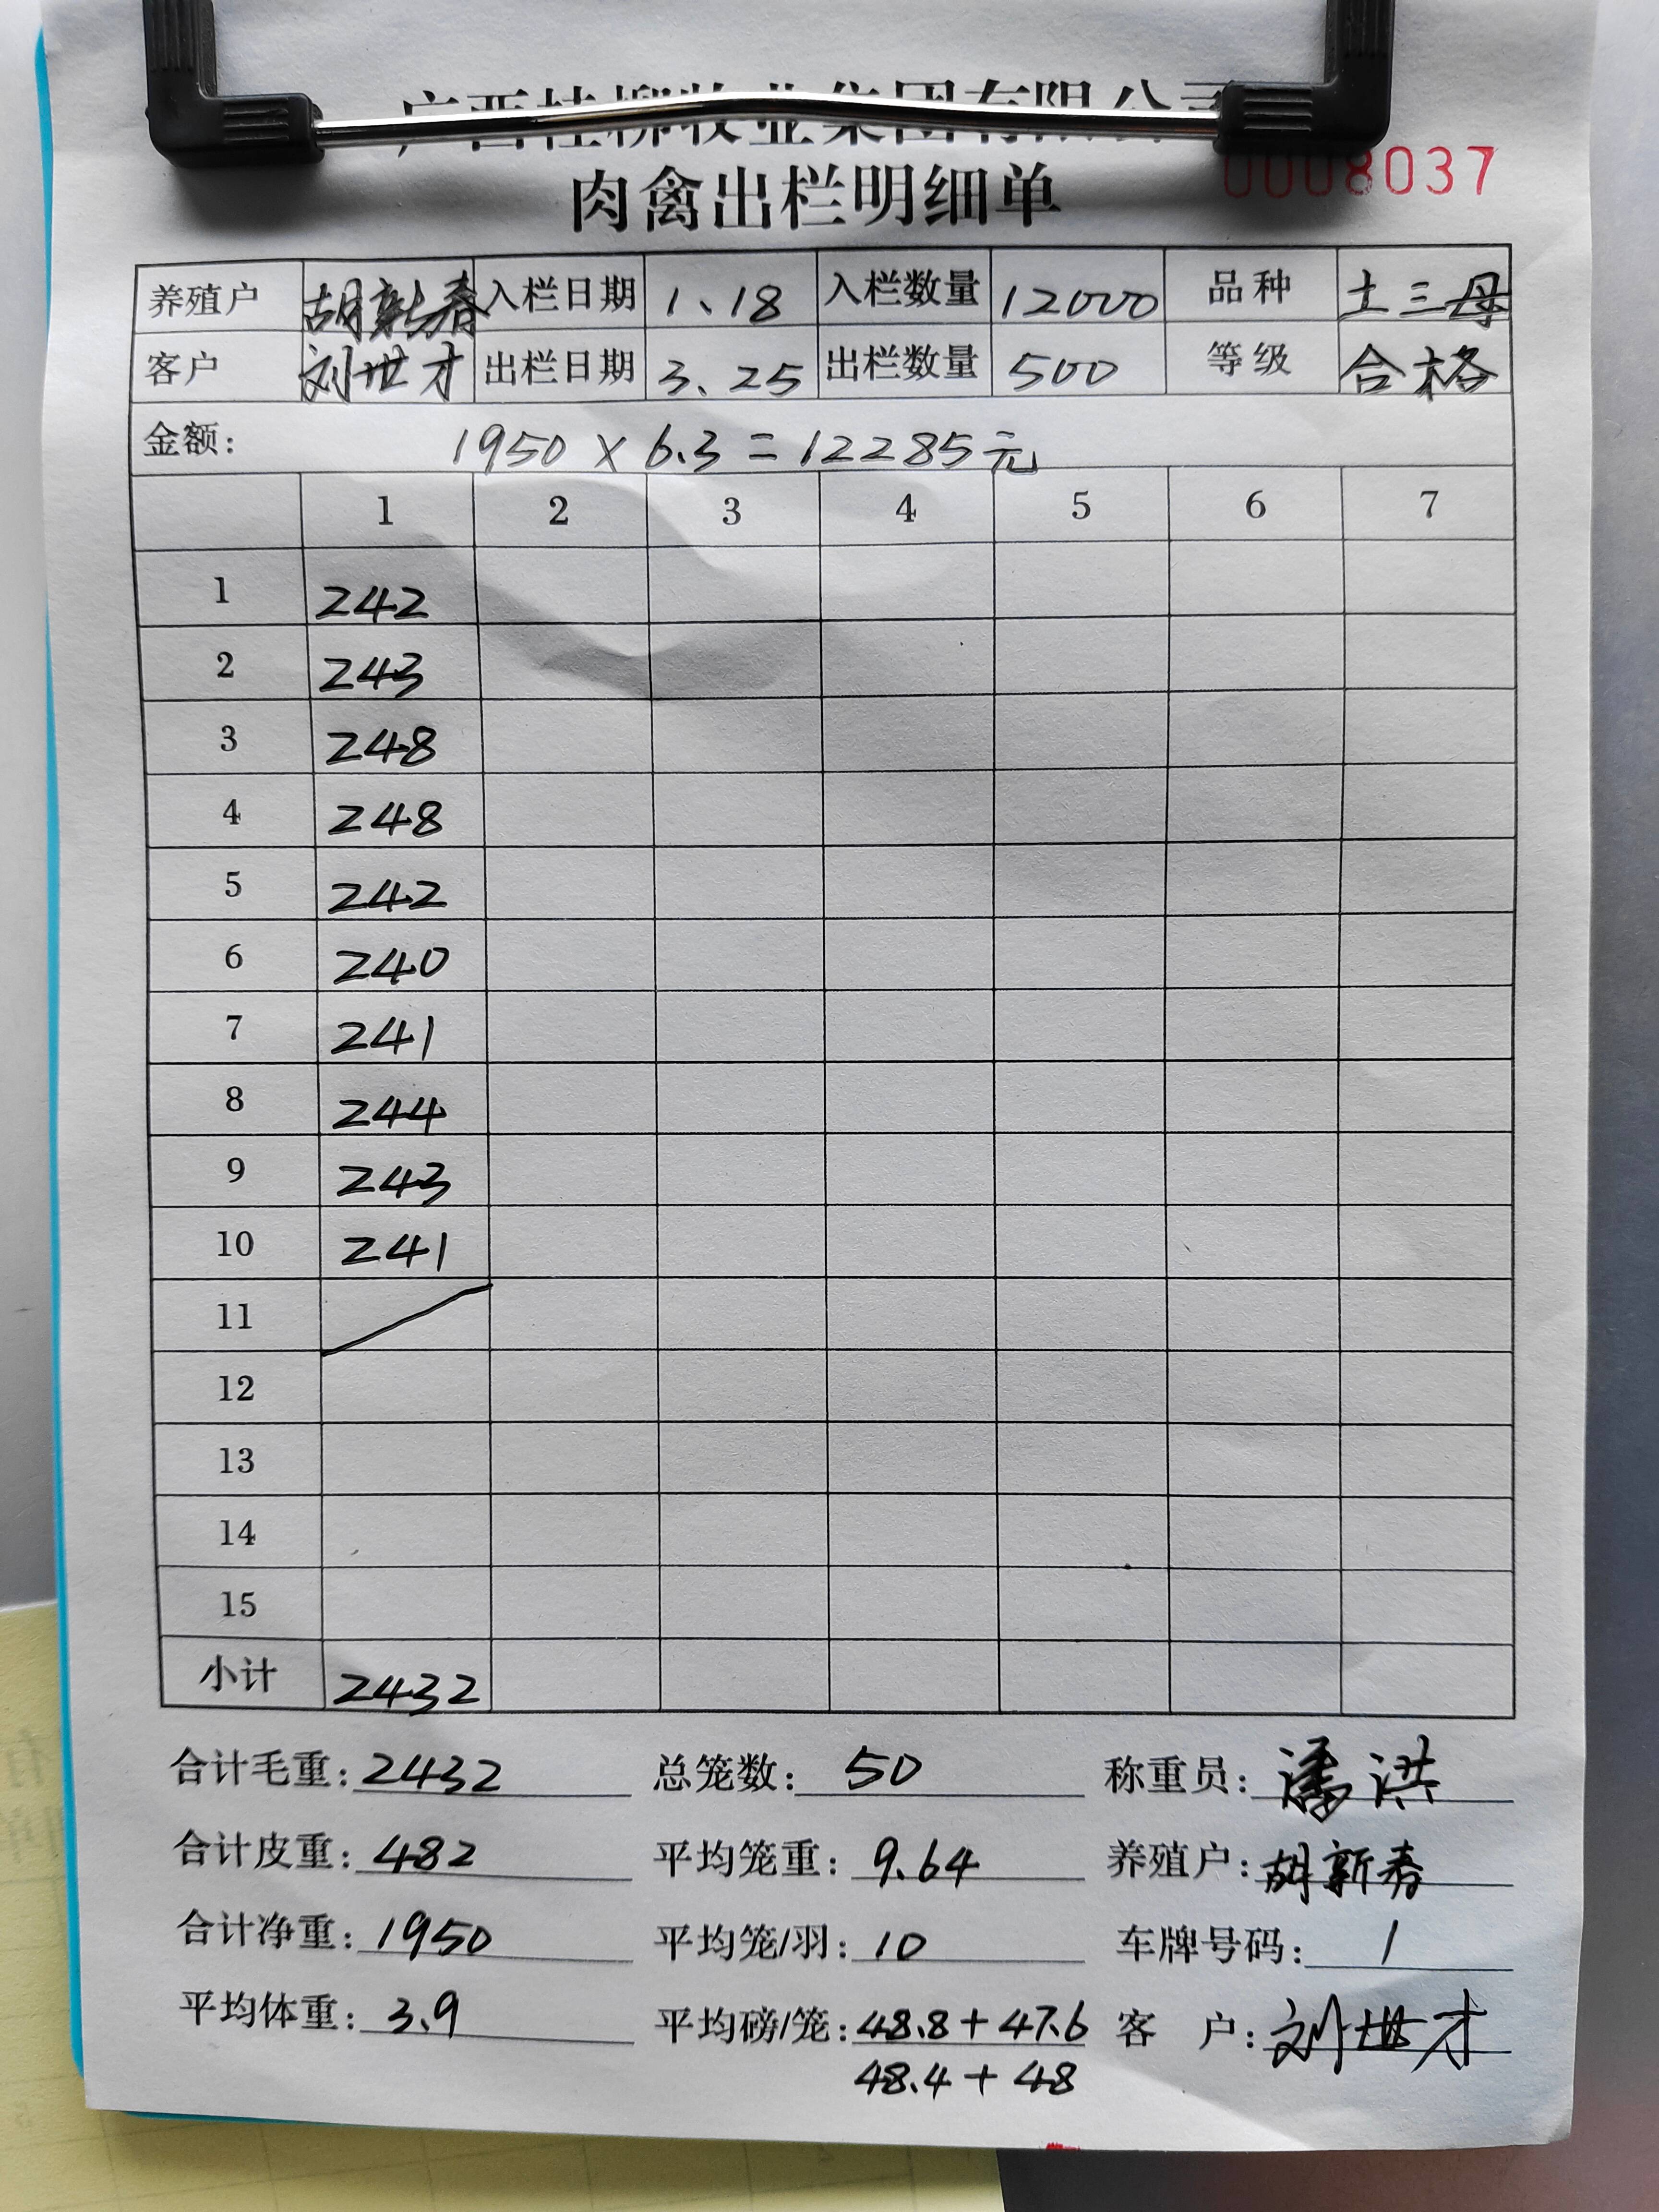 广西桂柳牧业集团有限公司
0008037
肉禽出栏明细单
养殖户 胡新春 入栏日期 1、18 入栏数量 12000 品种 土三母
客户 刘世才 出栏日期 3、25 出栏数量 500 等级 合格
金额: 1950 × 6.3 = 12285元
1 2 3 4 5 6 7
1 242
2 243
3 248
4 248
5 242
6 240
7 241
8 244
9 243
10 241
11
12
13
14
15
小计 2432
合计毛重: 2432 总笼数: 50 称重员: 潘洪
合计皮重: 482 平均笼重: 9.64 养殖户: 胡新春
合计净重: 1950 平均笼/羽: 10 车牌号码: 1
平均体重: 3.9 平均磅/笼: 48.8 + 47.6 客 户: 刘世才
48.4 + 48